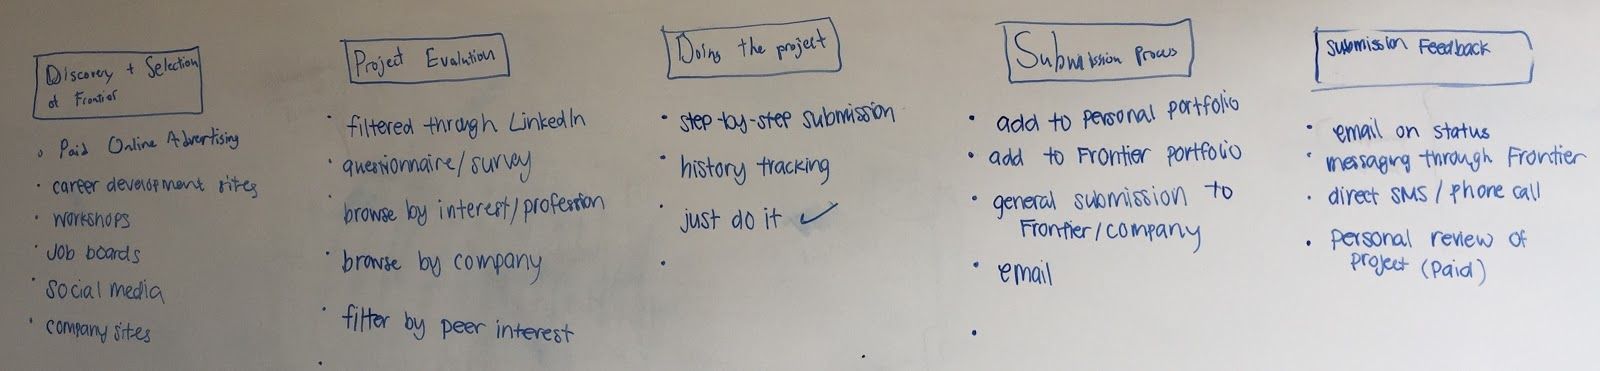 Discovery + Selection
of Frontier
Paid Online Advertising
career development sites
workshops
Job boards
social media
company sites
Project Evalution
filtered through LinkedIn
questionnaire/survey
browse by interest/profession
browse by company
filter by peer interest
Doing the project
step-by-step submission
history tracking
just do it ✓
Submission Process
add to personal portfolio
add to Frontier portfolio
general submission to
Frontier/company
email
Submission Feedback
email on status
messaging through Frontier
direct SMS/phone call
personal review of
project (paid)